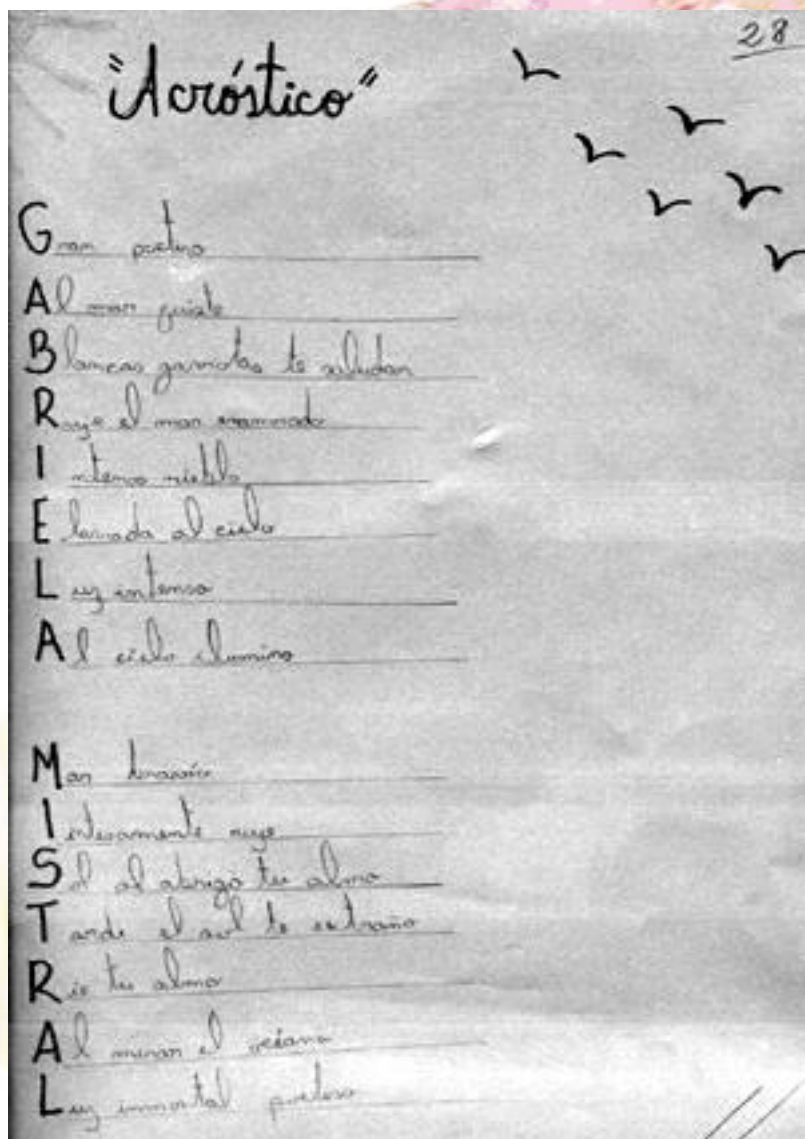 28
"Acróstico"
Gran poetisa
Al mar quiste
Blancas gaviotas te saludan
Ruge el mar enamorado
Intensa niebla
Elevada al cielo
Luz intensa
Al cielo ilumina
Mar bravío
Intesamente ruge
Sol al abrigo tu alma
Tarde el sol te extraña
Rie tu alma
Al mirar el océano
Luz inmortal poetisa